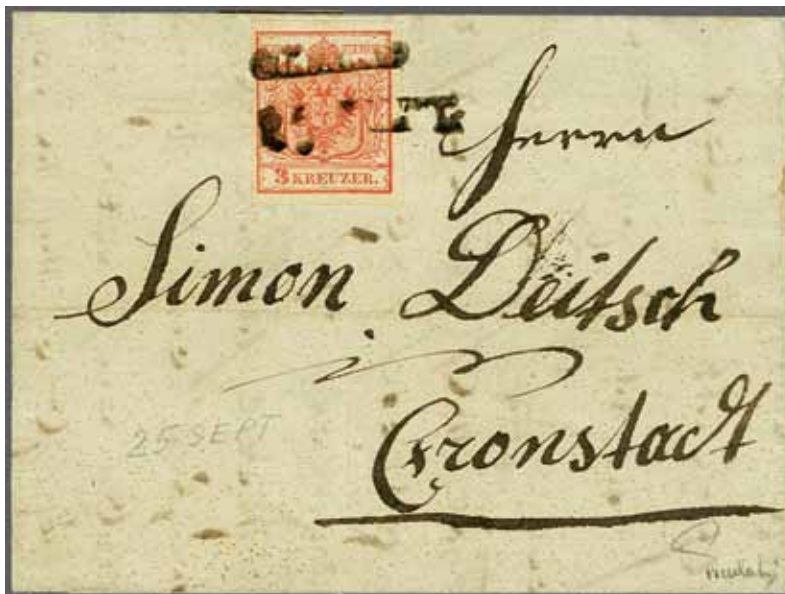 3 KREUZER.
Herrn
Simon Deitsch
in
Cronstadt
25 SEPT